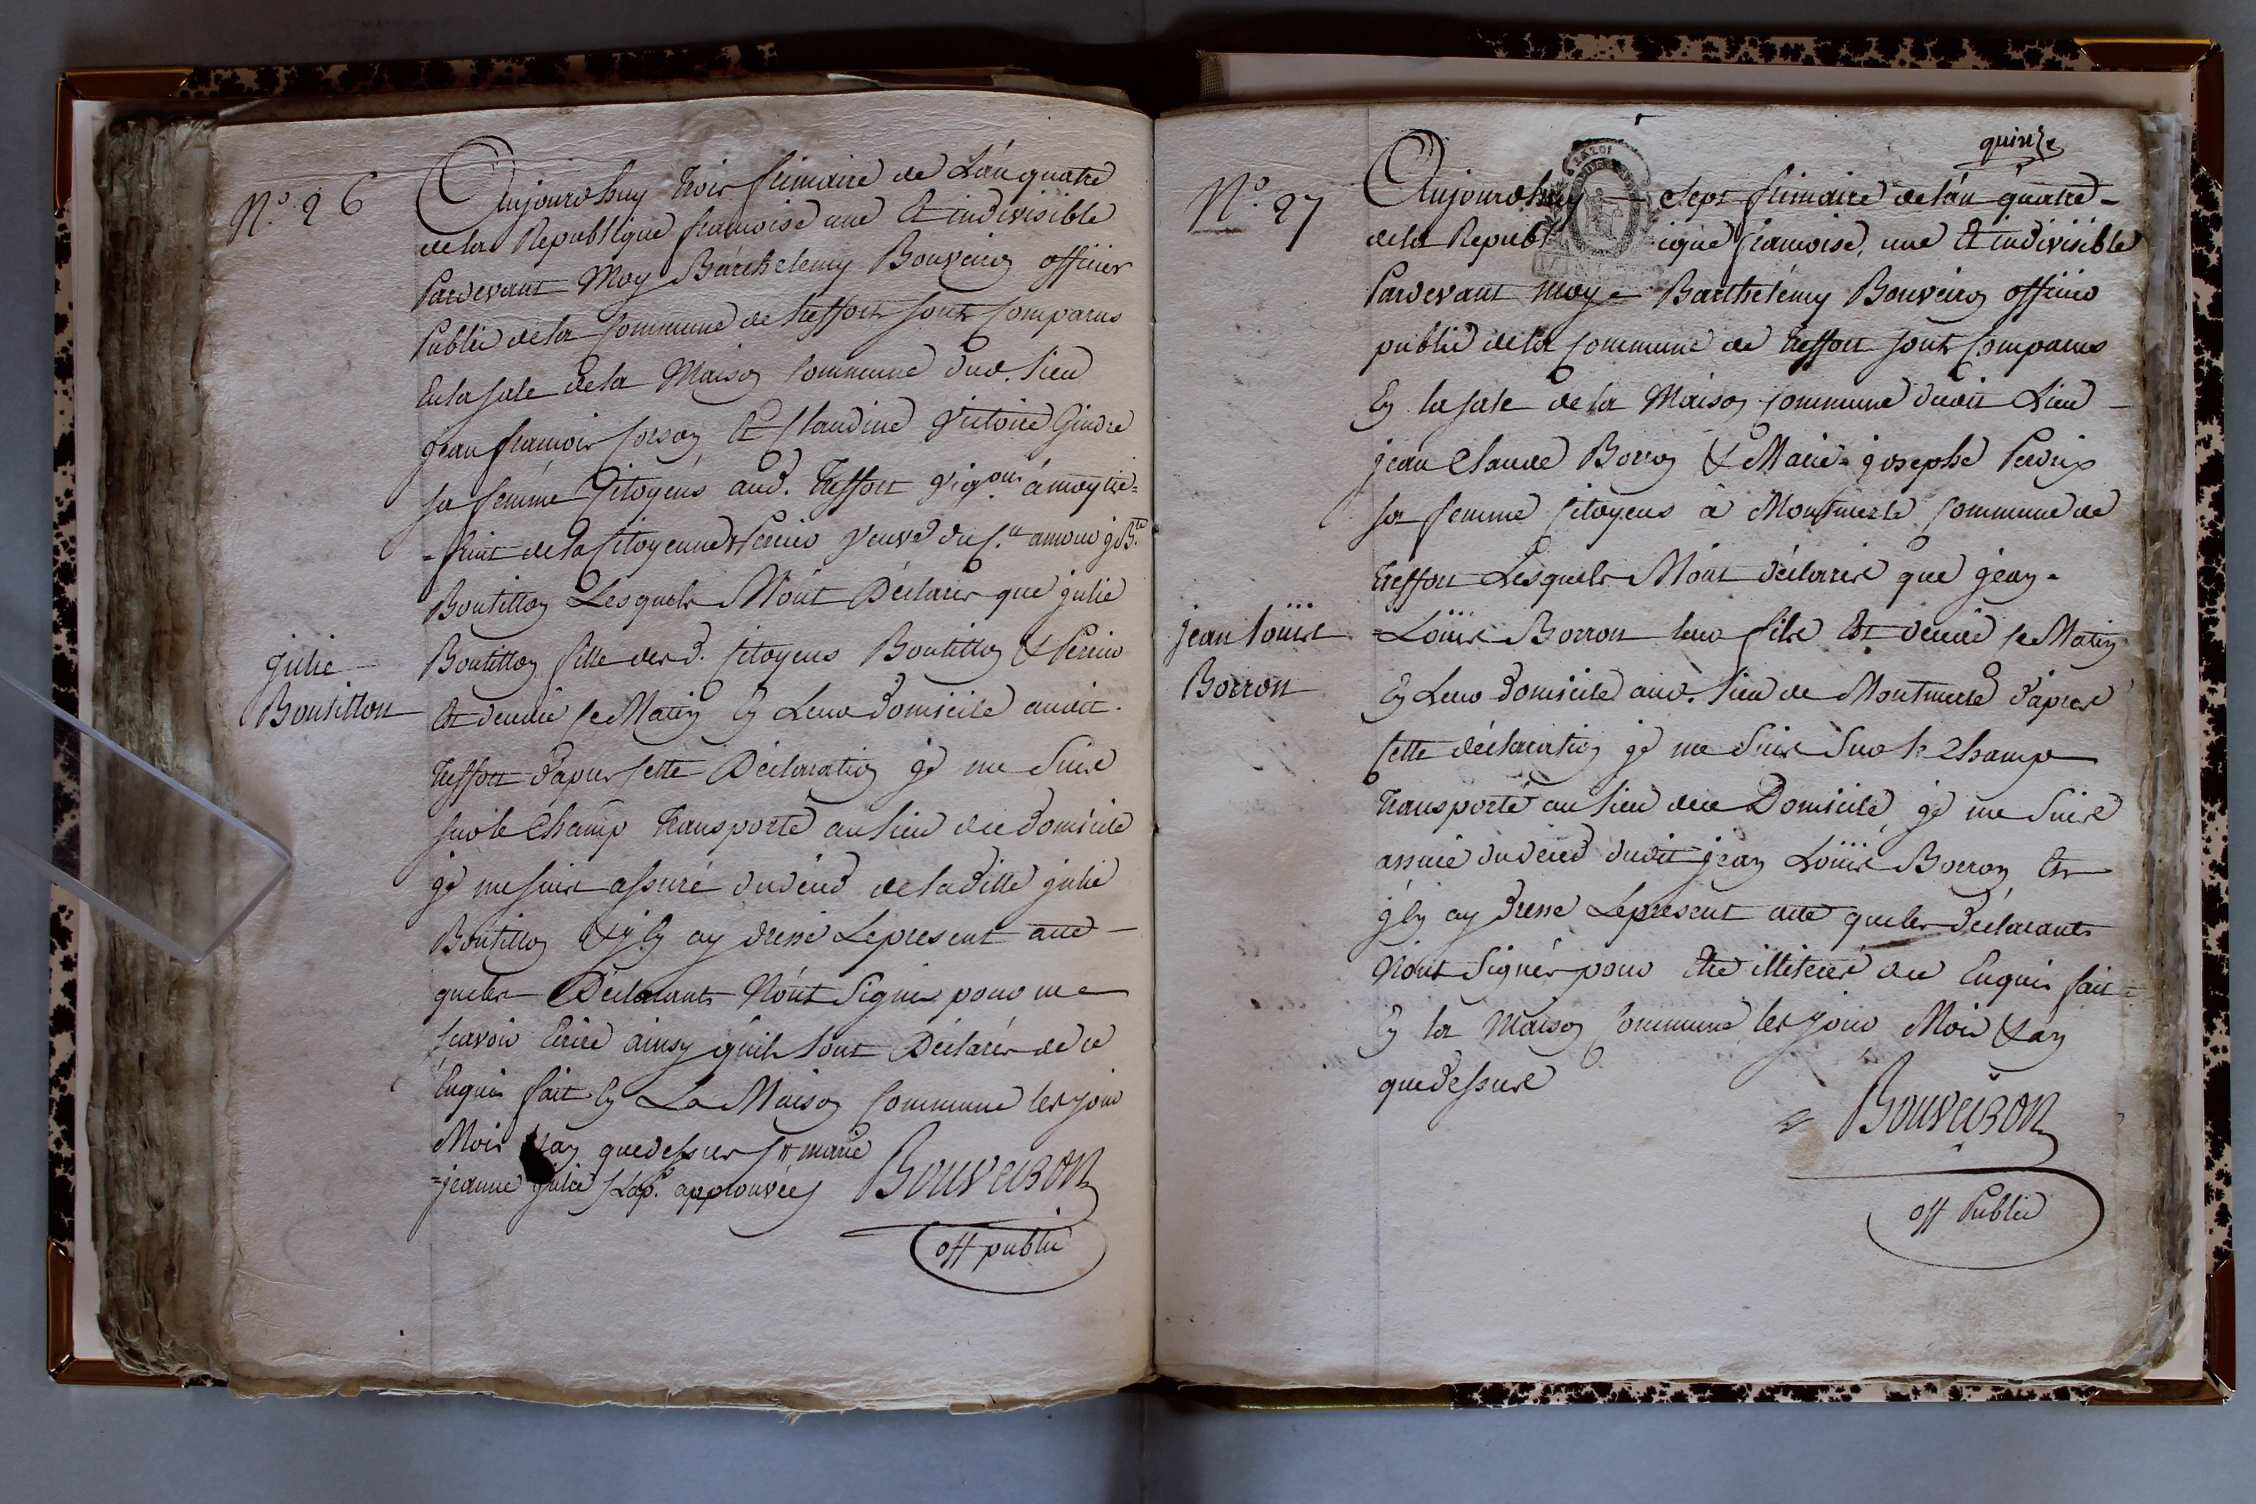 N.o 26
Aujourdhuy trois frimaire de L'an quatre
de la Republique francoise une Et indivisible
Pardevant Moy Barthelemy Bouveiron officier
Public de la Commune de treffort sont Comparus
En la sale de la Maison Commune dud. lieu
jean francois Corson Et Claudine Victoire Gindre
sa femme Citoyens aud. Treffort à moytie=
=fruit de la Citoyenne Perier Veuve du C.n
Boutillon Lesquels M'ont Déclarés que julie
julie
Boutillon
Boutillon fille des d. Citoyens Boutillon & Perier
Est decedée ce Matin En Leur Domicile audit.
Treffort d'apres Cette Déclaration je me Suis
sur le Champ Transporté au lieu du Domicile
je me suis assuré du décéd de ladille julie
Boutillon & j'En ay dressé Le present acte
que les Déclarants N'ont Signés pour ne
scavoir Ecrire ainsy qu'ils l'ont Déclarés de ce
Enquis fait En La Maison Commune les jour
Mois & an que dessus marie
=jeanne julie approuvée
Bouveiron
off public
quinze
N.o 27
Aujourdhuy Sept frimaire de l'an quatre
de la Republique francoise, une Et indivisible
Pardevant moy Barthelemy Bouveiron officier
public de la Commune de Treffort sont Comparus
En la sale de la Maison Commune dudit Lieu
jean Claude Borron & Marie=josephe Perdrix
sa femme Citoyens à Montmerle Commune de
treffort Lesquels M'ont déclarés que jean=
jean Louis
Borron
=Louis Borron leur fils Est decedé ce Matin
En Leur Domicile aud. lieu de Montmerle d'apres
Cette déclaration je me Suis Sur le Champ
Transporté au lieu du Domicile je me Suis
assuré du décéd dudit jean Louis Borron Et
j'En ay dressé Le present acte que les Déclarants
N'ont Signés pour Etre illiterés de ce Enquis fait
En la Maison Commune les jour Mois & an
que dessus
Bouveiron
off Public